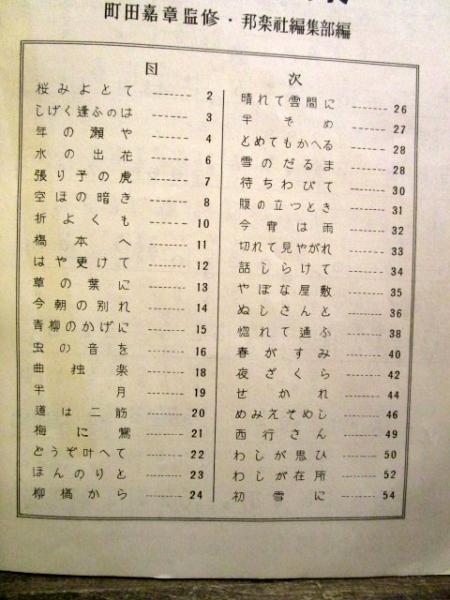 町田嘉章監修・邦楽社編集部編
目 次
桜みよとて ------- 2
しげく逢ふのは ------- 3
年の瀬や ------- 4
水の出花 ------- 6
張り子の虎 ------- 7
空ほの暗き ------- 8
折よくも ------- 10
橋本へ ------- 11
はや更けて ------- 12
草の葉に ------- 13
今朝の別れ ------- 14
青柳のかげに ------- 15
虫の音を ------- 16
曲独楽 ------- 18
半月 ------- 19
道は二筋 ------- 20
梅に鶯 ------- 21
どうぞ叶へて ------- 22
ほんのりと ------- 23
柳橋から ------- 24
晴れて雲間に ------- 26
半そめ ------- 27
とめてもかへる ------- 28
雪のだるま ------- 28
待ちわびて ------- 30
腹の立つとき ------- 31
今宵は雨 ------- 32
切れて見やがれ ------- 33
話しらけて ------- 34
やぼな屋敷 ------- 35
ぬしさんと ------- 36
惚れて通ふ ------- 38
春がすみ ------- 40
夜ざくら ------- 42
せかれ ------- 44
めみえぞめし ------- 46
西行さん ------- 49
わしが思ひ ------- 50
わしが在所 ------- 52
初雪に ------- 54